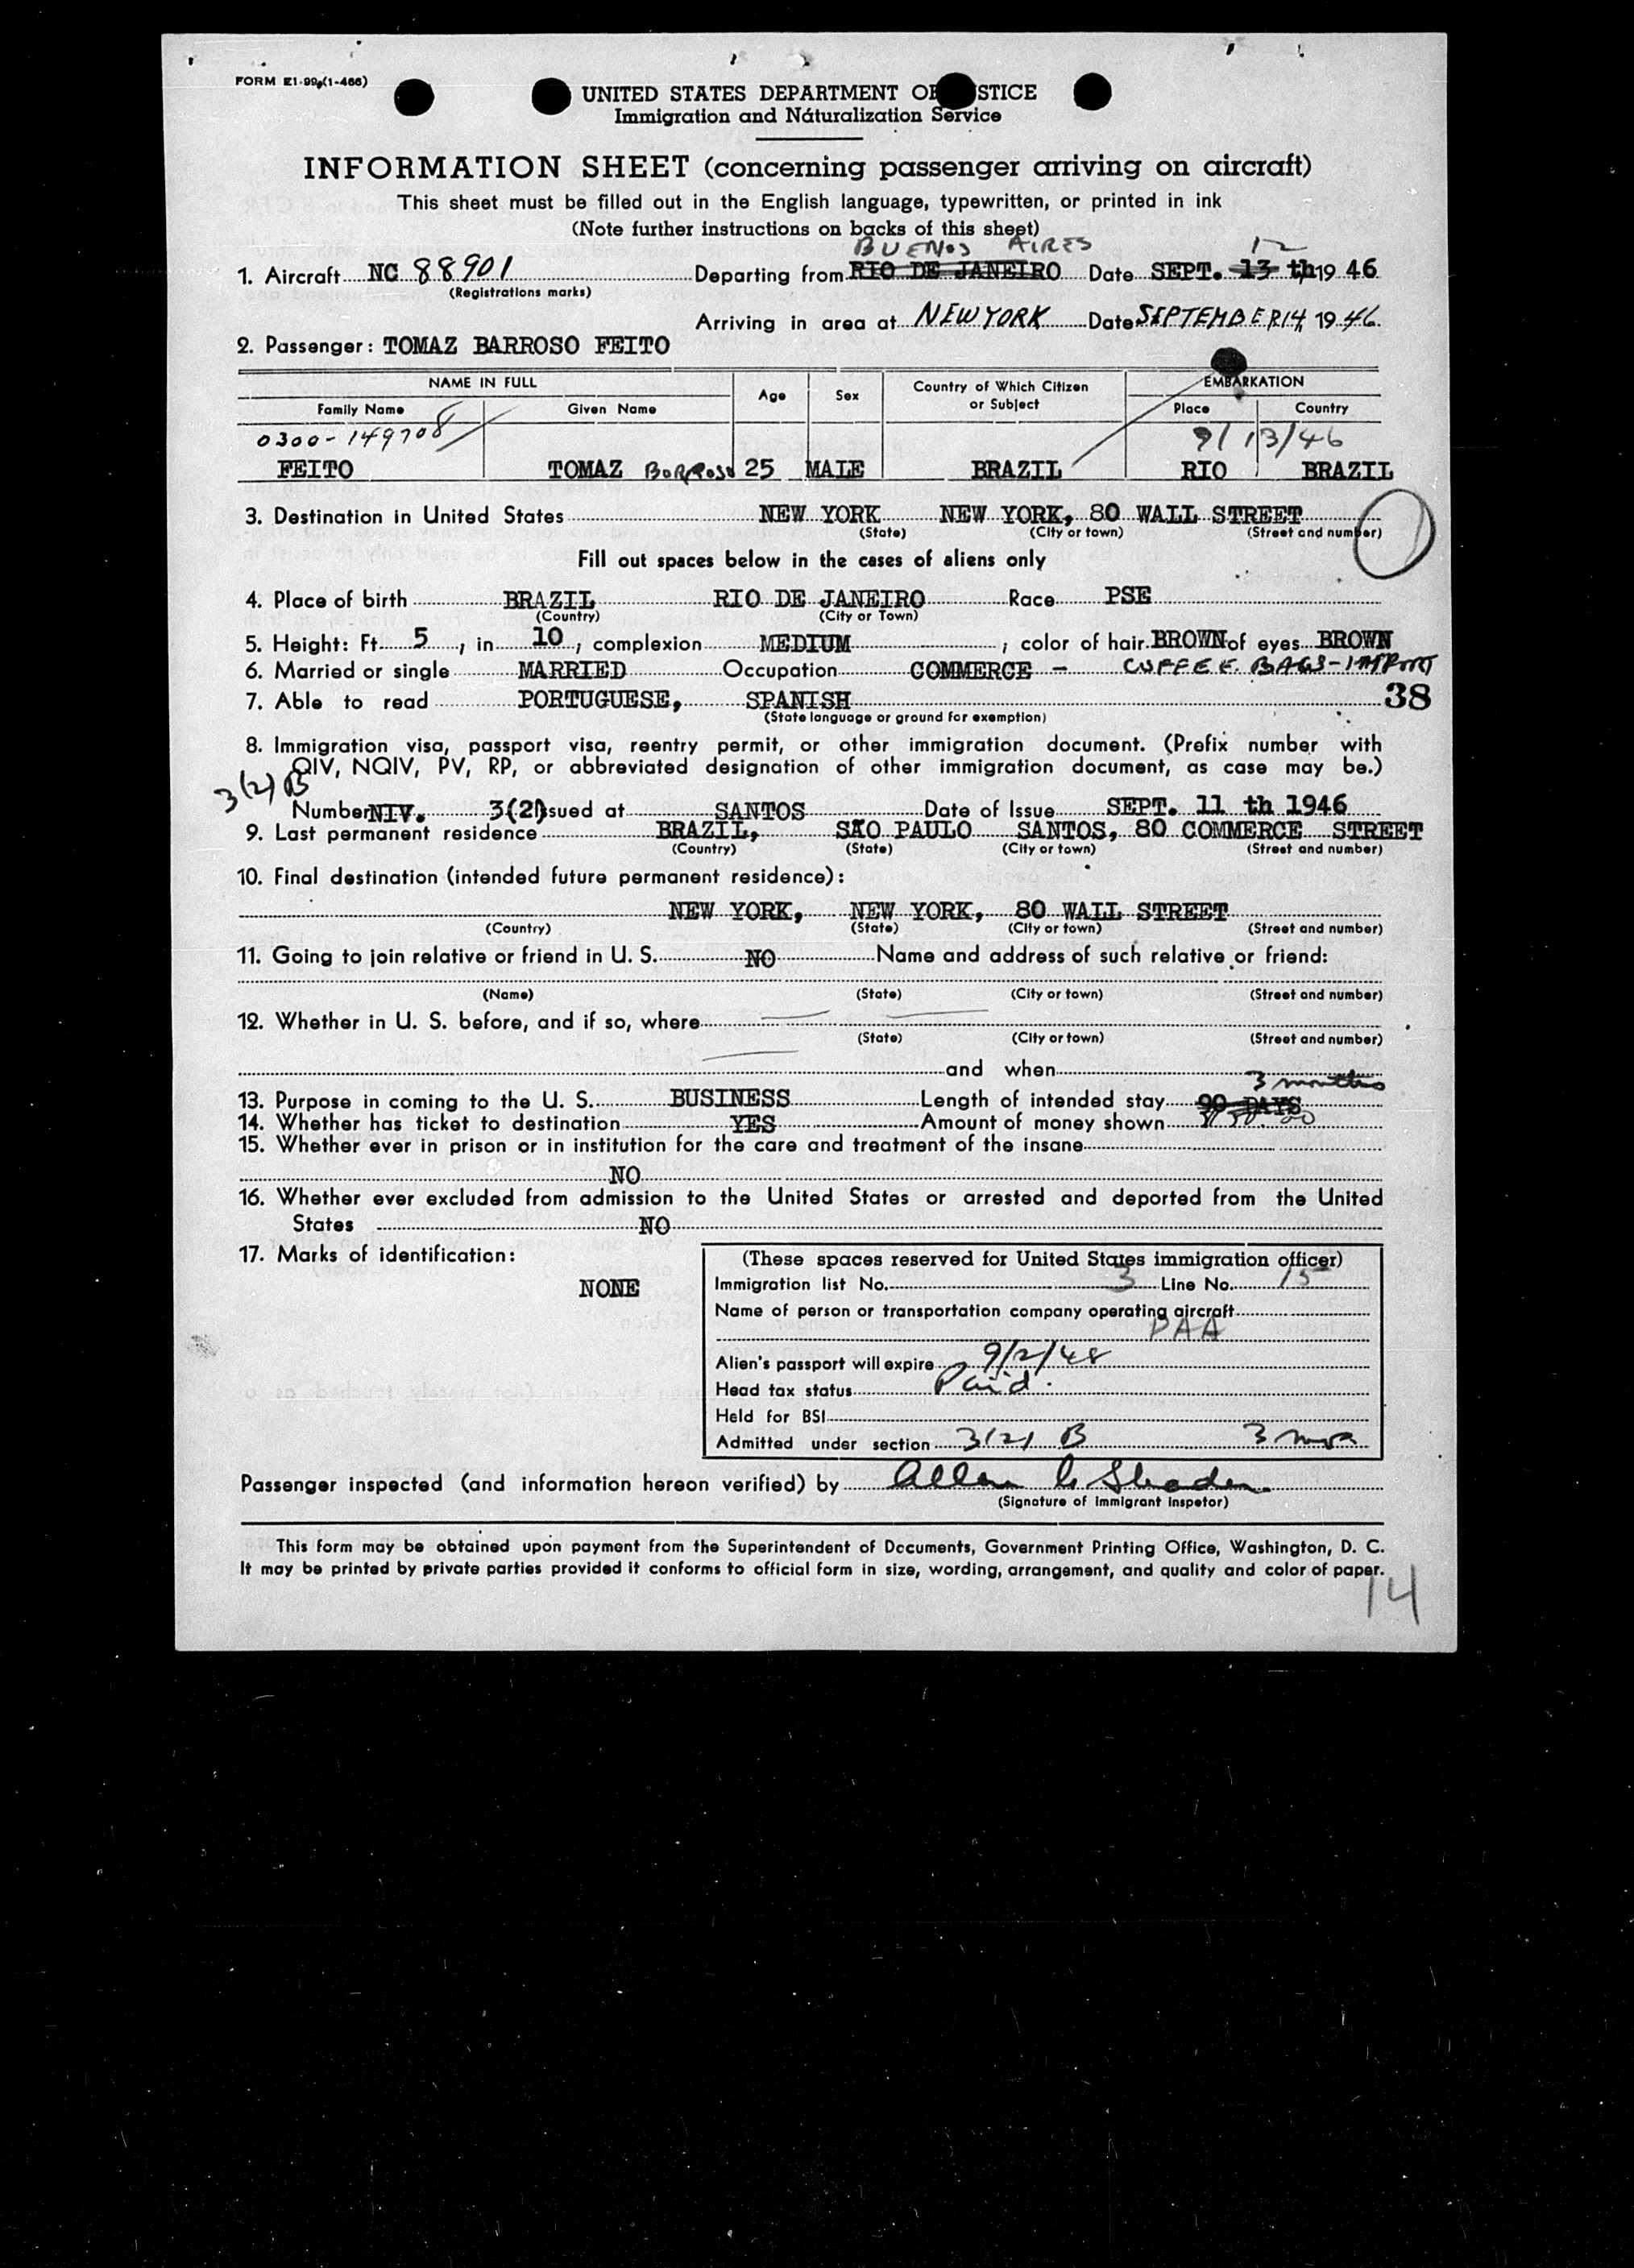 FORM E1-99 (1-466)
UNITED STATES DEPARTMENT OF STICE
Immigration and Naturalization Service
INFORMATION SHEET (concerning passenger arriving on aircraft)
This sheet must be filled out in the English language, typewritten, or printed in ink
(Note further instructions on backs of this sheet)
BUENOS AIRES 12
1. Aircraft NC 88901 Departing from RIO DE JANEIRO Date SEPT. 13 th 19 46
(Registrations marks)
Arriving in area at NEW YORK Date SEPTEMBER 14, 19 46.
2. Passenger: TOMAZ BARROSO FEITO
NAME IN FULL Age Sex Country of Which Citizen or Subject EMBARKATION
Family Name Given Name Place Country
0300-149708 9/13/46
FEITO TOMAZ BORROSO 25 MALE BRAZIL RIO BRAZIL
3. Destination in United States NEW YORK NEW YORK, 80 WALL STREET
(State) (City or town) (Street and number)
Fill out spaces below in the cases of aliens only
4. Place of birth BRAZIL RIO DE JANEIRO Race PSE
(Country) (City or Town)
5. Height: Ft. 5, in 10, complexion MEDIUM ; color of hair BROWN of eyes BROWN
6. Married or single MARRIED Occupation COMMERCE - COFFEE BAGS-IMPORT
7. Able to read PORTUGUESE, SPANISH 38
(State language or ground for exemption)
8. Immigration visa, passport visa, reentry permit, or other immigration document. (Prefix number with
QIV, NQIV, PV, RP, or abbreviated designation of other immigration document, as case may be.)
3(2) B
Number NIV. 3(2) Issued at SANTOS Date of Issue SEPT. 11 th 1946
9. Last permanent residence BRAZIL, SÃO PAULO SANTOS, 80 COMMERCE STREET
(Country) (State) (City or town) (Street and number)
10. Final destination (intended future permanent residence):
NEW YORK, NEW YORK, 80 WALL STREET
(Country) (State) (City or town) (Street and number)
11. Going to join relative or friend in U. S. NO Name and address of such relative or friend:
(Name) (State) (City or town) (Street and number)
12. Whether in U. S. before, and if so, where
(State) (City or town) (Street and number)
and when
3 months
13. Purpose in coming to the U. S. BUSINESS Length of intended stay 90 DAYS
14. Whether has ticket to destination YES Amount of money shown
15. Whether ever in prison or in institution for the care and treatment of the insane
NO
16. Whether ever excluded from admission to the United States or arrested and deported from the United
States NO
17. Marks of identification:
NONE
(These spaces reserved for United States immigration officer)
Immigration list No. 3 Line No. 15
Name of person or transportation company operating aircraft
PAA
Alien's passport will expire 9/2/48
Head tax status Paid.
Held for BSI
Admitted under section 3(2) B 3 mos
Passenger inspected (and information hereon verified) by Allen
(Signature of Immigrant Inspetor)
This form may be obtained upon payment from the Superintendent of Documents, Government Printing Office, Washington, D. C.
It may be printed by private parties provided it conforms to official form in size, wording, arrangement, and quality and color of paper.
14